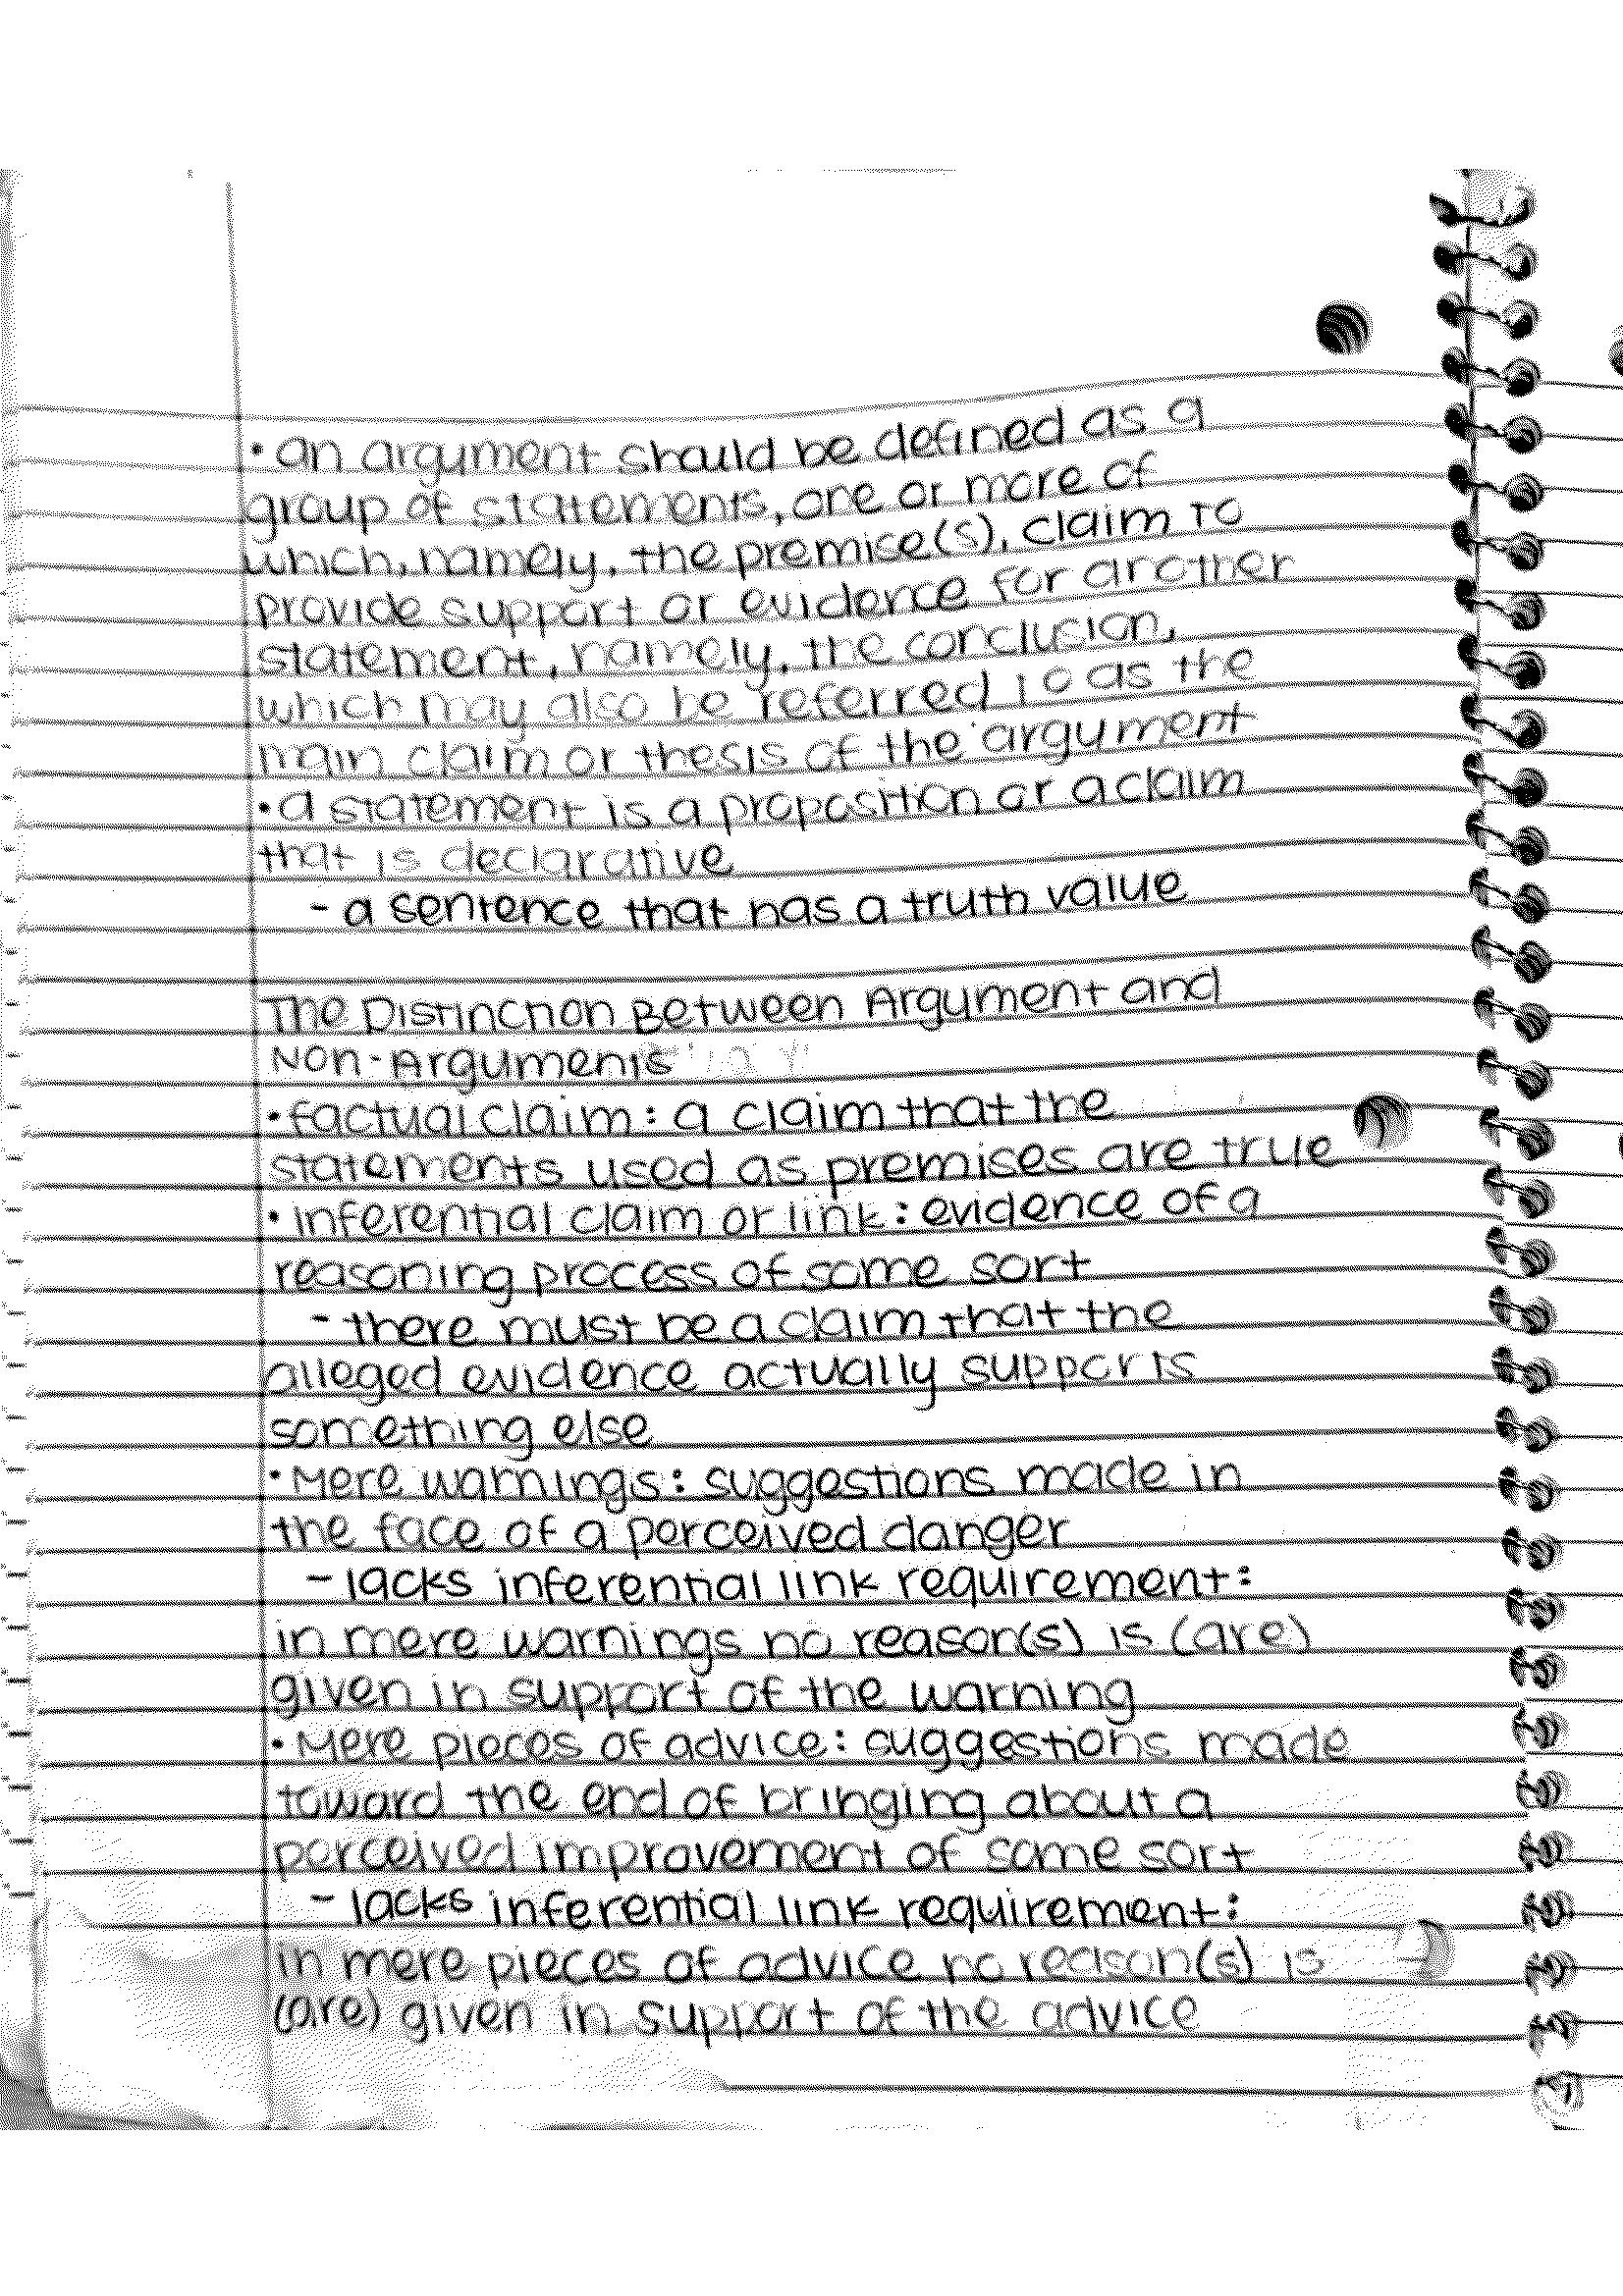 • an argument should be defined as a
group of statements, one or more of
which, namely, the premise(s), claim to
provide support or evidence for another
statement, namely, the conclusion,
which may also be referred to as the
main claim or thesis of the argument
• a statement is a proposition or a claim
that is declarative
- a sentence that has a truth value
The Distinction Between Argument and
Non-Arguments
• factual claim: a claim that the
statements used as premises are true
• inferential claim or link: evidence of a
reasoning process of some sort
- there must be a claim that the
alleged evidence actually supports
something else
• Mere warnings: suggestions made in
the face of a perceived danger
- lacks inferential link requirement:
in mere warnings no reason(s) is (are)
given in support of the warning
• Mere pieces of advice: suggestions made
toward the end of bringing about a
perceived improvement of some sort
- lacks inferential link requirement:
in mere pieces of advice no reason(s) is
(are) given in support of the advice